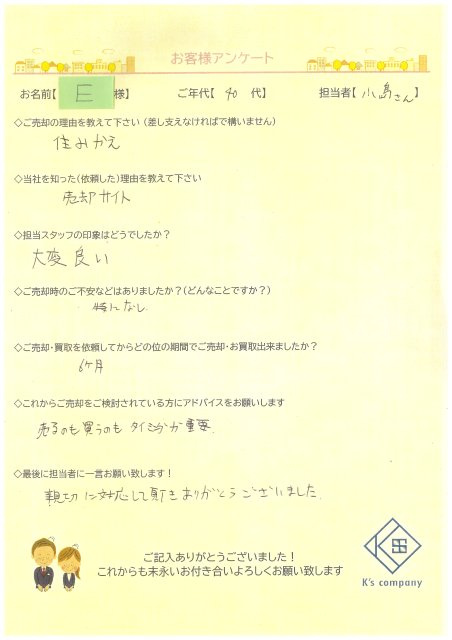 お客様アンケート
お名前【 E 様】 ご年代【 40 代】 担当者【 小島さん 】
◇ご売却の理由を教えて下さい（差し支えなければで構いません）
住みかえ
◇当社を知った（依頼した）理由を教えて下さい
売却サイト
◇担当スタッフの印象はどうでしたか？
大変良い
◇ご売却時のご不安などはありましたか？（どんなことですか？）
特になし
◇ご売却・買取を依頼してからどの位の期間でご売却・お買取出来ましたか？
6ヶ月
◇これからご売却をご検討されている方にアドバイスをお願いします
売るのも買うのもタイミングが重要
◇最後に担当者に一言お願い致します！
親切に対応して頂きありがとうございました。
ご記入ありがとうございました！
これからも末永いお付き合いよろしくお願い致します
K's company